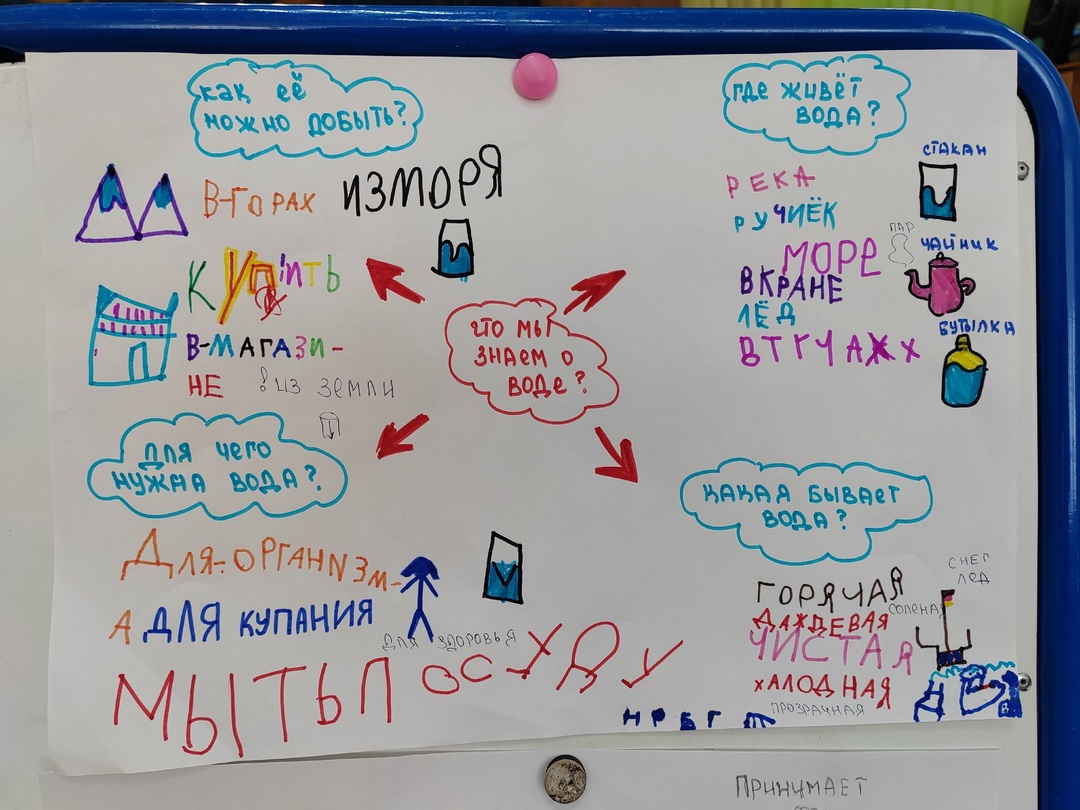 как её
можно добыть?
В-ГОРАХ
ИЗМОРЯ
КУПИТЬ
В-МАГАЗИ-
НЕ
! ИЗ ЗЕМЛИ
ГДЕ ЖИВЁТ
ВОДА?
РЕКА
РУЧИЁК
МОРЕ
ВКРАНЕ
ЛЁД
ВТГЧАЖХ
СТАКАН
ПАР
ЧАЙНИК
БУТЫЛКА
ЧТО МЫ
ЗНАЕМ О
ВОДЕ?
ДЛЯ ЧЕГО
НУЖНА ВОДА?
ДЛЯ-ОРГАНИЗМ-
А ДЛЯ КУПАНИЯ
ДЛЯ ЗДОРОВЬЯ
МЫТЬП
КАКАЯ БЫВАЕТ
ВОДА?
СНЕГ
ЛЕД
ГОРЯЧАЯ
СОЛЕНАЯ
ДАЖДЕВАЯ
ЧИСТАЯ
ХАЛОДНАЯ
ПРОЗРАЧНАЯ
ПРИНИМАЕТ